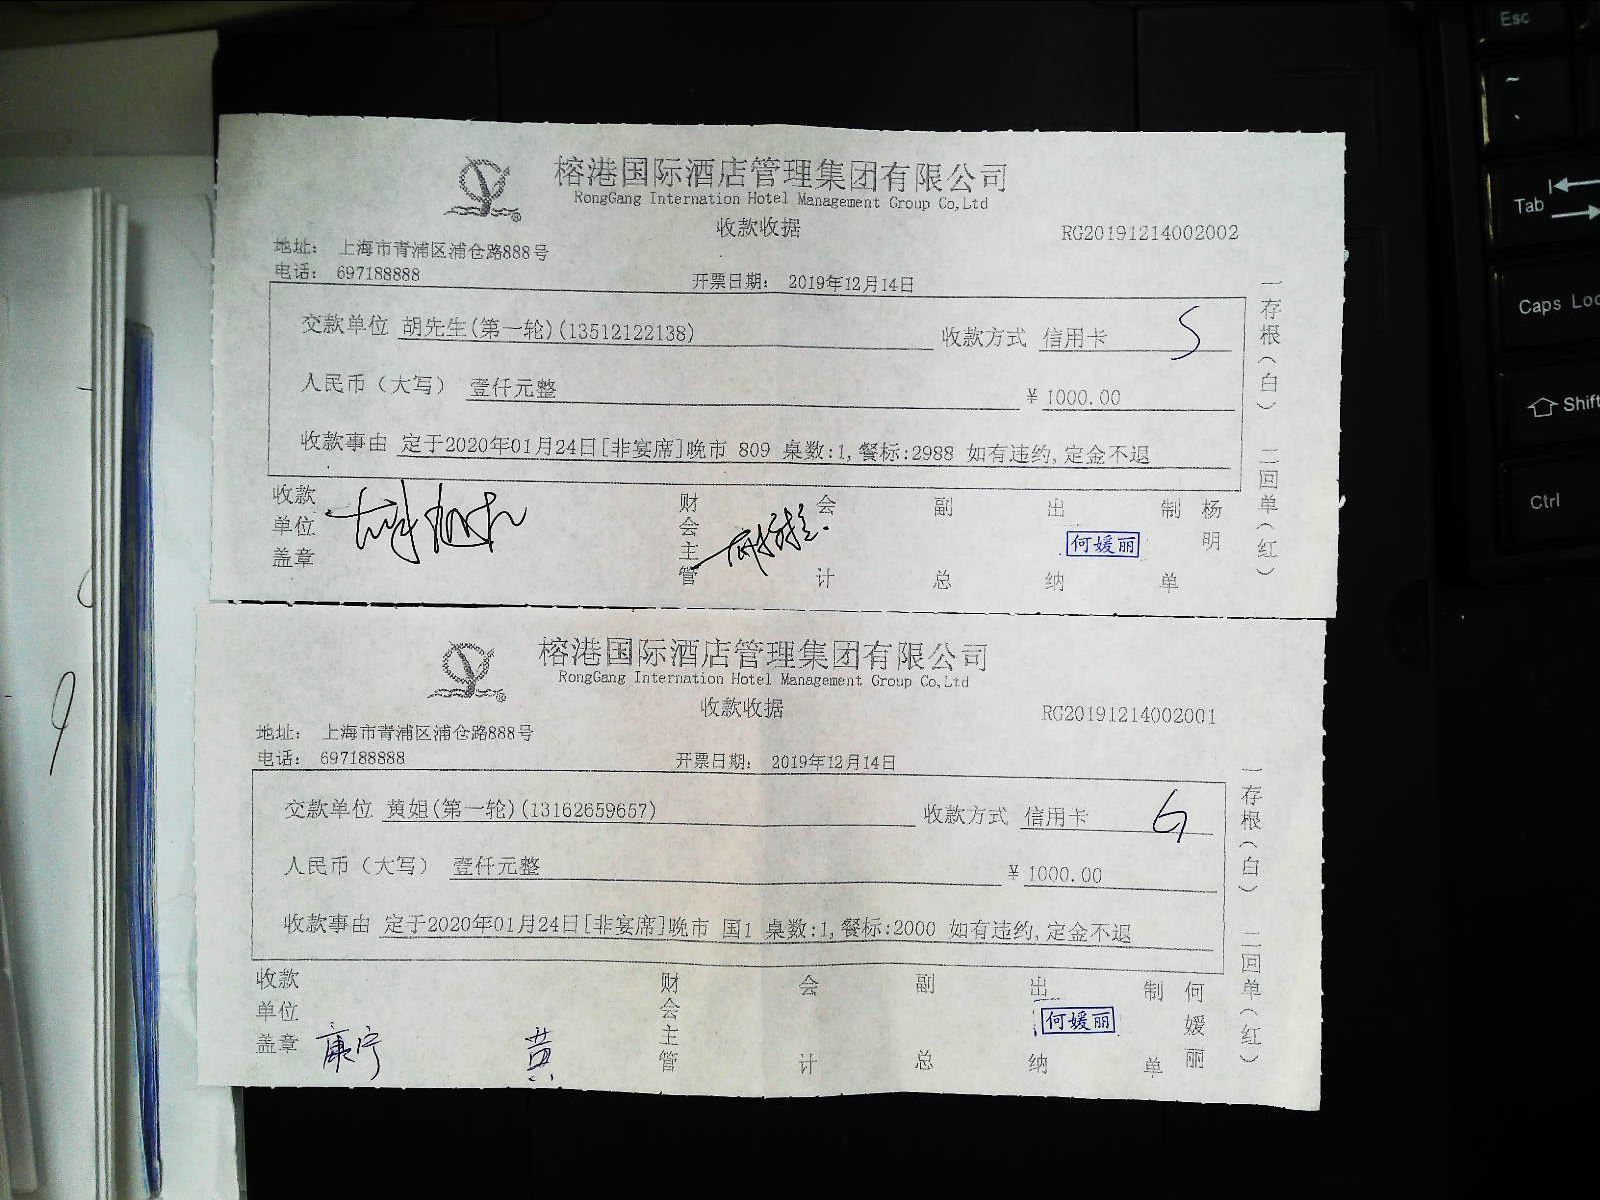 榕港国际酒店管理集团有限公司
RongGang Internation Hotel Management Group Co,Ltd
收款收据
RG20191214002002
地址： 上海市青浦区浦仓路888号
电话： 697188888
开票日期： 2019年12月14日
交款单位 胡先生(第一轮)(13512122138) 收款方式 信用卡 S
人民币（大写） 壹仟元整 ¥ 1000.00
收款事由 定于2020年01月24日[非宴席]晚市 809 桌数:1,餐标:2988 如有违约,定金不退
收款单位盖章 财会主管 会计 副总 出纳 何媛丽 制单 杨明
一存根（白） 二回单（红）
榕港国际酒店管理集团有限公司
RongGang Internation Hotel Management Group Co,Ltd
收款收据
RG20191214002001
地址： 上海市青浦区浦仓路888号
电话： 697188888
开票日期： 2019年12月14日
交款单位 黄姐(第一轮)(13162659657) 收款方式 信用卡
人民币（大写） 壹仟元整 ¥ 1000.00
收款事由 定于2020年01月24日[非宴席]晚市 国1 桌数:1,餐标:2000 如有违约,定金不退
收款单位盖章 康宁 黄 财会主管 会计 副总 出纳 何媛丽 制单 何媛丽
一存根（白） 二回单（红）
Esc
~
Tab
Caps Loc
Shift
Ctrl